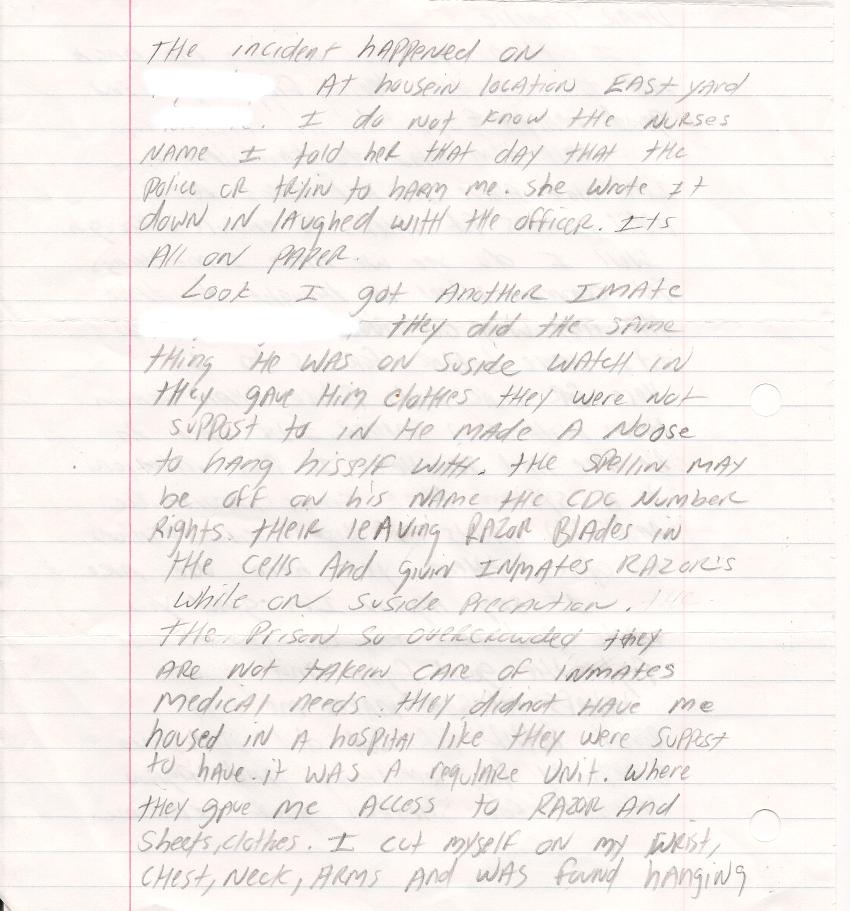 THE incident happened on
At housein location EAST yard
. I do not know the nurses
name I told her that day that the
police or tryin to harm me. she wrote it
down in laughed with the officer. Its
All on paper.
Look I got Another Imate
, they did the same
thing He was on suside watch in
they gave Him clothes they were not
suppost to in He made a noose
to hang hisself with. the spellin may
be off on his name the CDC Number
Rights. their leaving RAZOR Blades in
the cells And givin INmates RAZOR's
while on suside precaution. the
The Prison so overcrowded they
are not takein care of inmates
medical needs. they didnot have me
housed in a hospital like they were suppost
to have. it was a regulare unit. where
they gave me access to RAZOR And
sheets, clothes. I cut myself on my wrist,
chest, neck, arms and was found hanging